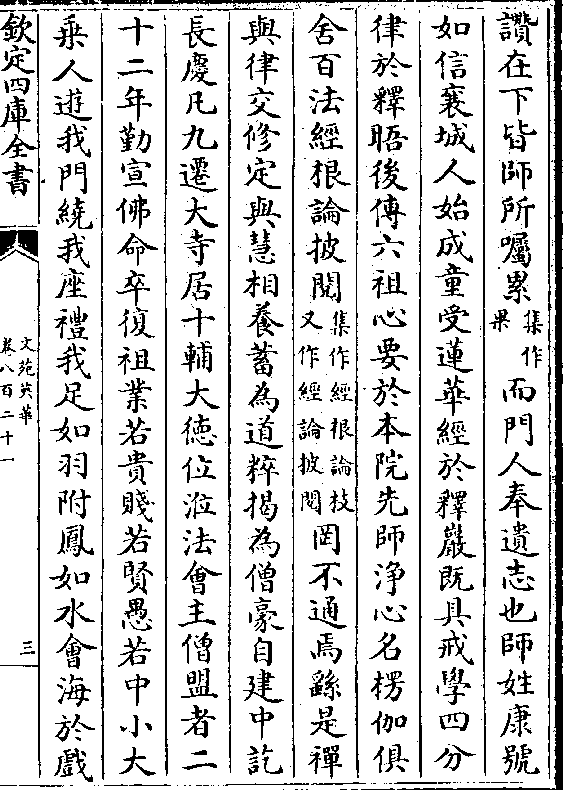 讚在下皆師所囑累集作果而門人奉遺志也師姓康號
如信襄城人始成童受蓮華經於釋巖既具戒學四分
律於釋晤後傳六祖心要於本院先師淨心名楞伽俱
舍百法經根論披閱集作經根論技又作經論披閱罔不通焉繇是禪
與律交修定與慧相養蓄為道粹揭為僧豪自建中訖
長慶凡九遷大寺居十輔大德位涖法會主僧盟者二
十二年勤宣佛命卒復祖業若貴賤若賢愚若中小大
乗人遊我門繞我座禮我足如羽附鳳如水會海於戲
欽定四庫全書
文苑英華
卷八百二十一
三